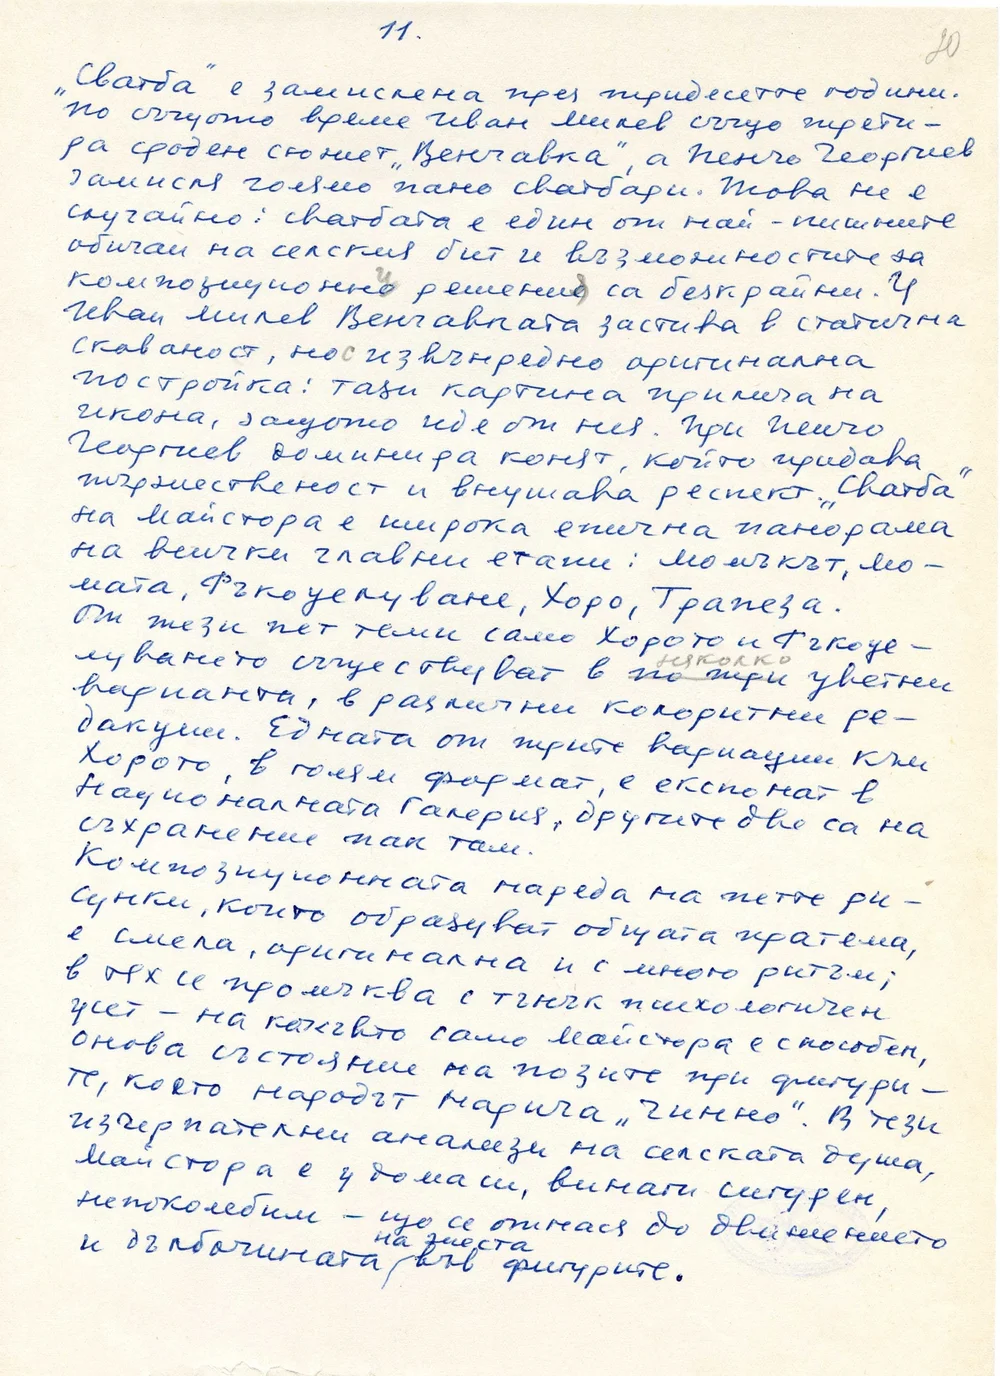 11.
20
„Сватба" е замислена през тридесетте години.
По същото време Иван Милев също трети-
ра сроден сюжет „Венчавка", а Пенчо Георгиев
замисля голямо пано сватбари. Това не е
случайно: сватбата е един от най-пищните
обичаи на селския бит и възможностите за
композиционни решения са безкрайни. У
Иван Милев Венчавката застива в статична
скованост, но с извънредно оригинална
постройка: тази картина прилича на
икона, защото иде от нея. При Пенчо
Георгиев доминира конят, който придава
тържественост и внушава респект. „Сватба"
на Майстора е широка епична панорама
на всички главни етапи: момъкът, мо-
мата, Ръкоцелуване, Хоро, Трапеза.
От тези пет теми само Хорото и Ръкоце-
няколко
луването съществуват в по три цветни
варианта, в различни колоритни ре-
дакции. Едната от трите вариации към
Хорото, в голям формат, е експонат в
Националната Галерия, другите две са на
съхранение пак там.
Композиционната нареда на петте ри-
сунки, които образуват общата пратема,
е смела, оригинална и с много ритъм;
в тях се промъква с тънък психологичен
усет – на какъвто само Майстора е способен,
онова състояние на позите при фигури-
те, което народът нарича „чинно". В тези
изчерпателни анализи на селската душа,
Майстора е у дома си, винаги сигурен,
непоколебим – що се отнася до движението
на жеста
и дълбочината във фигурите.